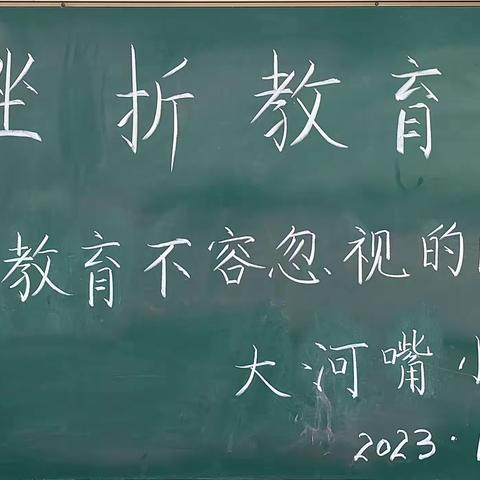 挫折教育
教育不容忽视的
大河嘴小
2023·1